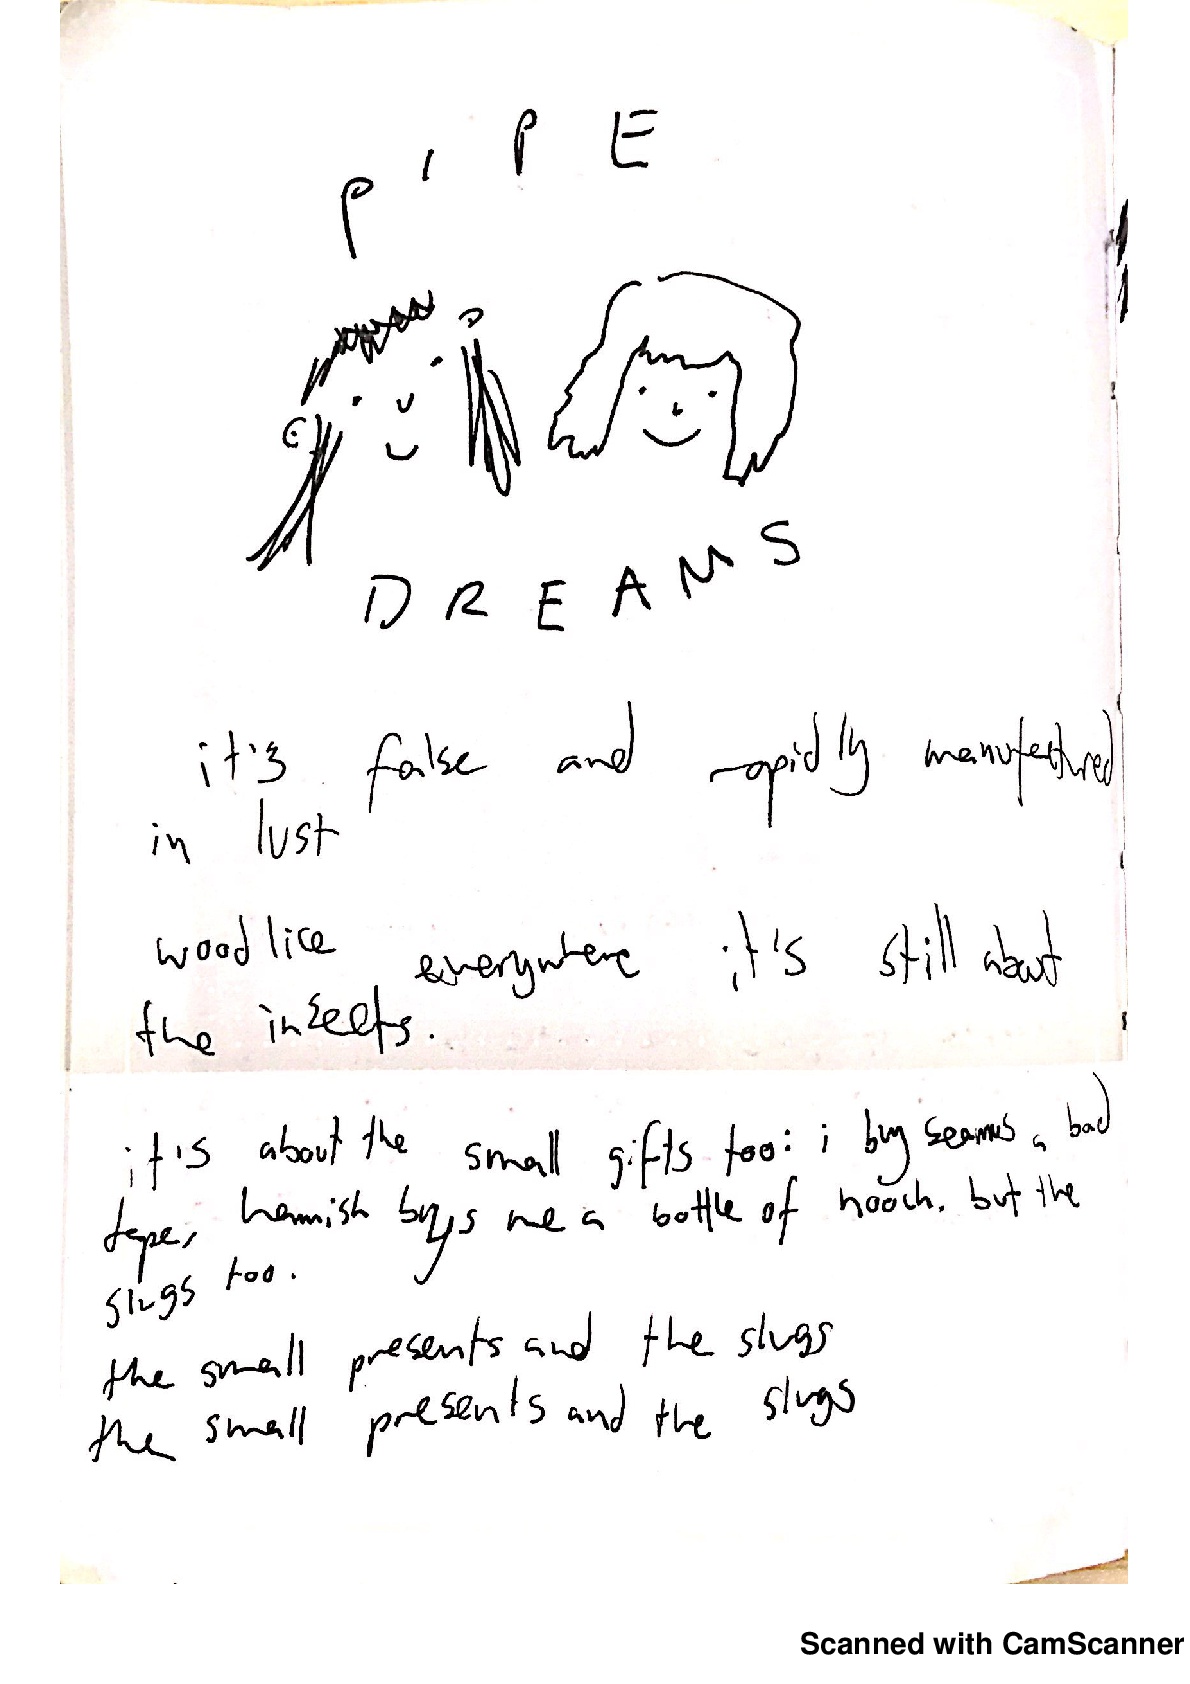 PIPE
DREAMS
it's false and rapidly manufactured
in lust
woodlice everywhere it's still about
the insects.
it's about the small gifts too: i buy seamus a bad
tape, hamish buys me a bottle of hooch. but the
slugs too.
the small presents and the slugs
the small presents and the slugs
Scanned with CamScanner